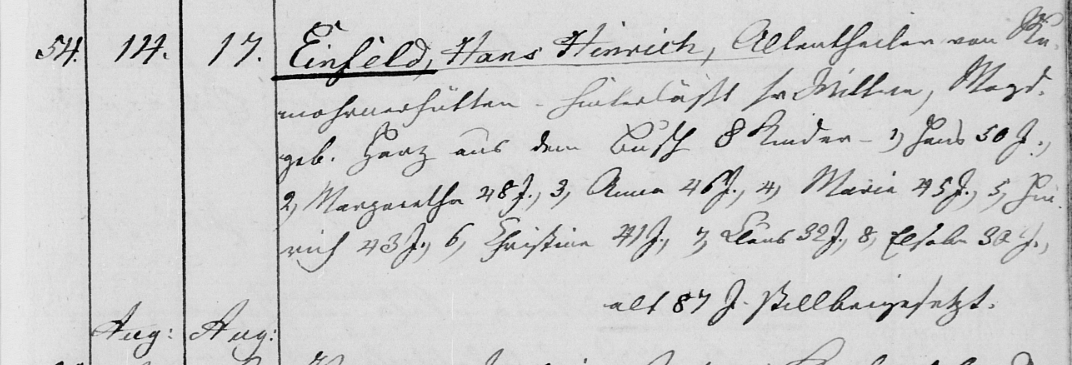 54. 14. 17. Einfeld, Hans Hinrich, Altentheiler von Ru-
mohrerhütten - hinterläßt s. Wittwe, Magd.
geb. Harz aus dem Busch 8 Kinder - 1, Hans 50 J.,
2, Margaretha 48 J., 3, Anna 46 J., 4, Marie 45 J., 5, Hin-
rich 43 J., 6, Christine 41 J., 7, Claus 32 J., 8, Elsabe 30 J.,
alt 87 J. stillbeigesetzt.
Aug: Aug: